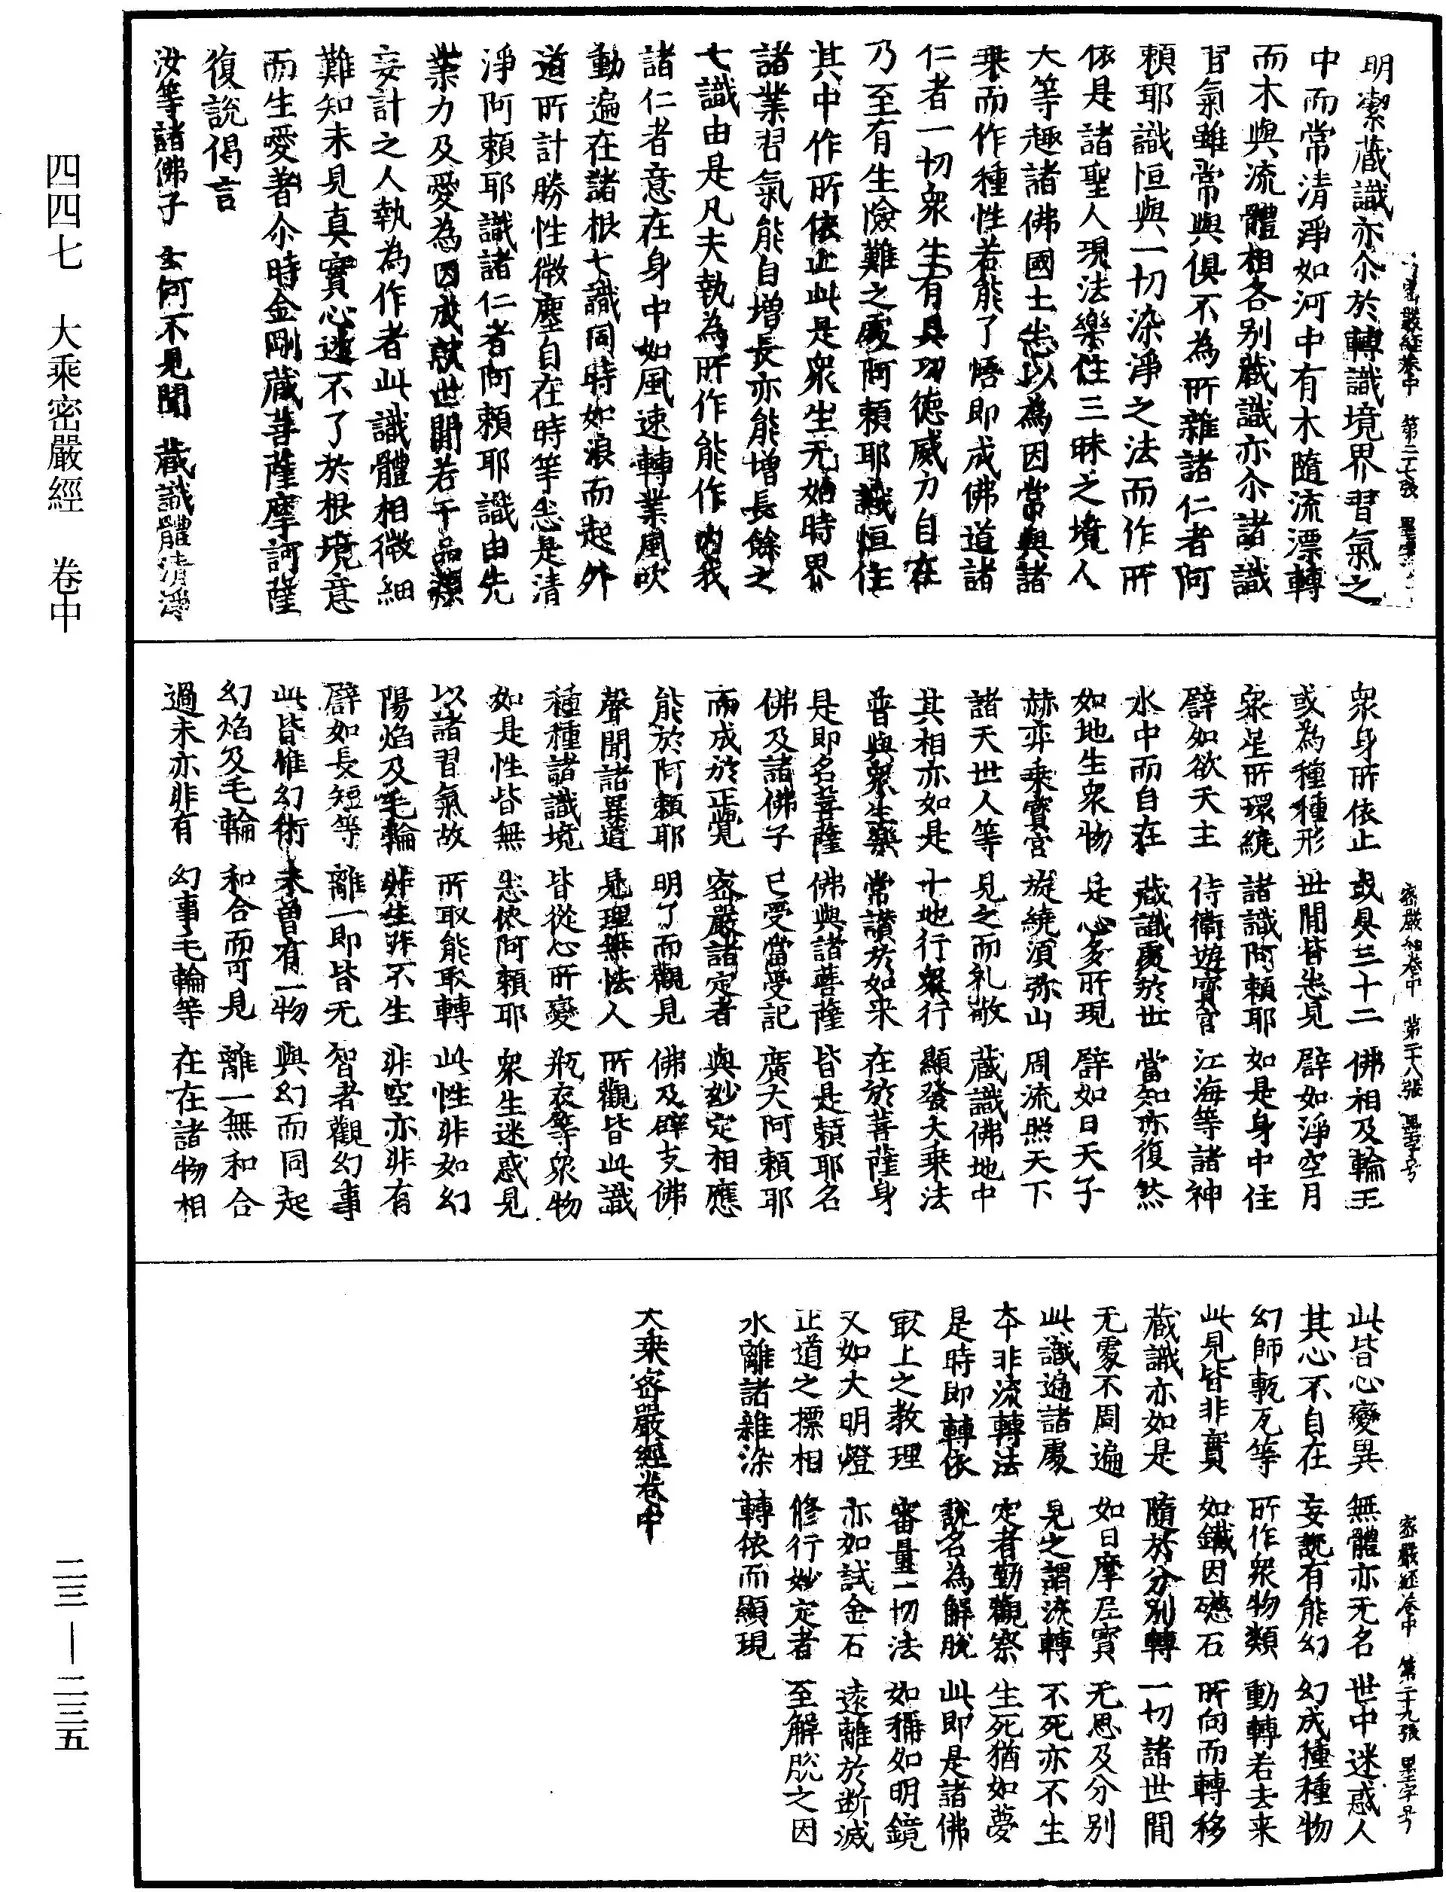 明潔藏識亦尒於轉識境界習氣之
中而常清淨如河中有木隨流漂轉
而木與流體相各別藏識亦尒諸識
習氣雖常與俱不為所雜諸仁者阿
頼耶識恒與一切染淨之法而作所
依是諸聖人現法樂住三昧之境人
天等趣諸佛國土悉以為因常與諸
乗而作種性若能了悟即成佛道諸
仁者一切衆生有具功德威力自在
乃至有生險難之處阿頼耶識恒住
其中作所依止此是衆生无始時界
諸業習氣能自增長亦能增長餘之
七識由是凡夫執為所作能作內我
諸仁者意在身中如風速轉業風吹
動遍在諸根七識同時如浪而起外
道所計勝性微塵自在時等悉是清
淨阿頼耶識諸仁者阿頼耶識由先
業力及愛為因成就世間若干品類
妄計之人執為作者此識體相微細
難知未見真實心迷不了於根境意
而生愛著尒時金剛藏菩薩摩訶薩
復說偈言
汝等諸佛子 云何不見聞 藏識體清淨
密嚴經卷中 第二十八張 墨字号
衆身所依止 或具三十二 佛相及輪王
或為種種形 世間皆悉見 譬如淨空月
衆星所環繞 諸識阿頼耶 如是身中住
譬如欲天主 侍衛遊寳宮 江海等諸神
水中而自在 藏識處於世 當知亦復然
如地生衆物 是心多所現 譬如日天子
赫弈乗寳宮 旋繞須弥山 周流照天下
諸天世人等 見之而礼敬 藏識佛地中
其相亦如是 十地行衆行 顯發大乗法
普與衆生樂 常讃於如来 在於菩薩身
是即名菩薩 佛與諸菩薩 皆是頼耶名
佛及諸佛子 已受當受記 廣大阿頼耶
而成於正覺 密嚴諸定者 與妙定相應
能於阿頼耶 明了而觀見 佛及辟支佛
聲聞諸異道 見理無怯人 所觀皆此識
種種諸識境 皆從心所變 瓶衣等衆物
如是性皆無 悉依阿頼耶 衆生迷惑見
以諸習氣故 所取能取轉 此性非如幻
陽焰及毛輪 非生非不生 非空亦非有
譬如長短等 離一即皆无 智者觀幻事
此皆惟幻術 未曾有一物 與幻而同起
幻焰及毛輪 和合而可見 離一無和合
過未亦非有 幻事毛輪等 在在諸物相
密嚴經卷中 第二十九張 墨字号
此皆心變異 無體亦无名 世中迷惑人
其心不自在 妄說有能幻 幻成種種物
幻師甎瓦等 所作衆物類 動轉若去来
此見皆非實 如鐵因磁石 所向而轉移
藏識亦如是 隨於分別轉 一切諸世間
无處不周遍 如日摩尼寳 无思及分別
此識遍諸處 見之謂流轉 不死亦不生
本非流轉法 定者勤觀察 生死猶如夢
是時即轉依 說名為解脫 此即是諸佛
㝡上之教理 審量一切法 如稱如明鏡
又如大明燈 亦如試金石 遠離於断滅
正道之摽相 修行妙定者 至解脫之因
水離諸雜染 轉依而顯現
大乗密嚴經卷中
四四七 大乘密嚴經 卷中
二三—二三五